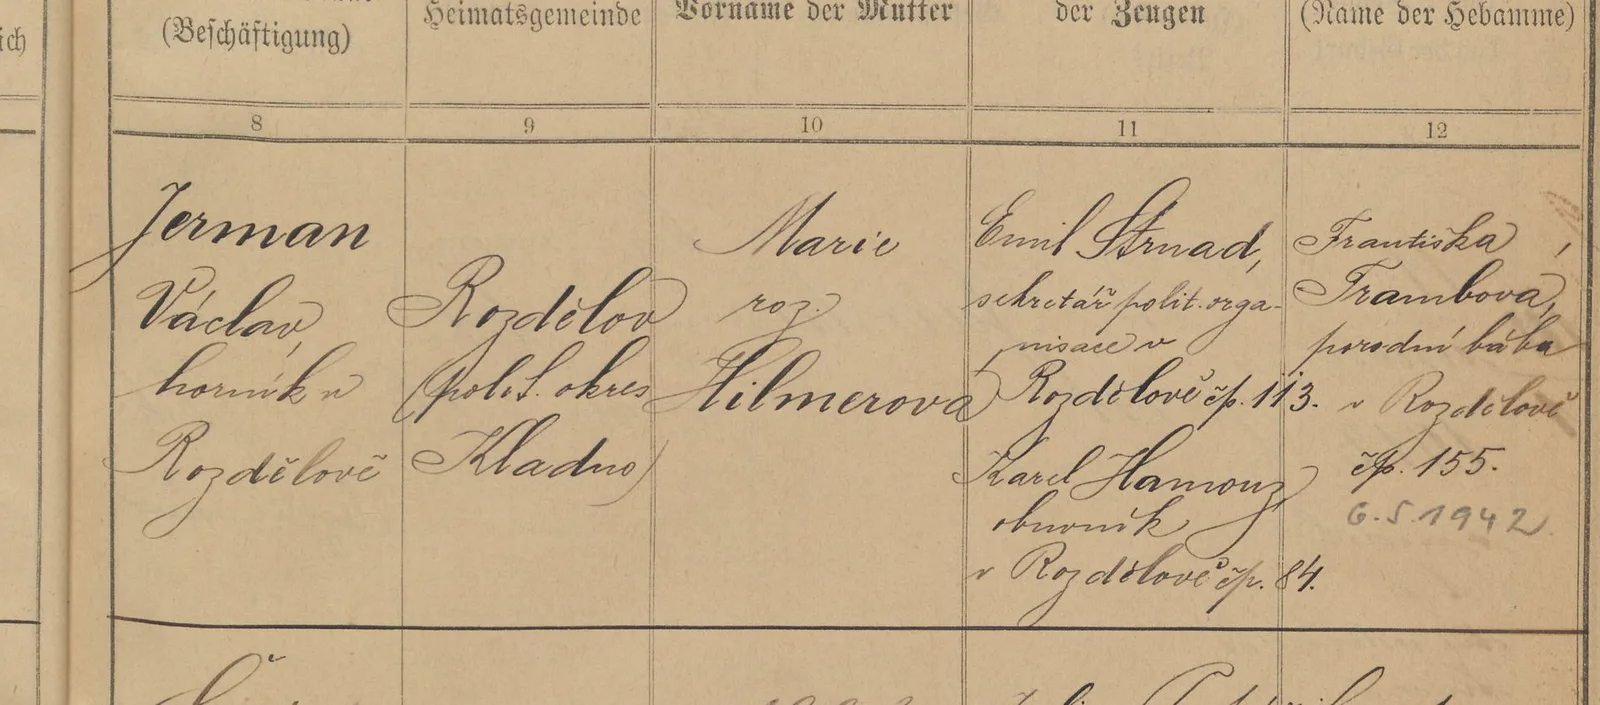 (Beschäftigung)
Heimatsgemeinde
Vorname der Mutter
der Zeugen
(Name der Hebamme)
ich
8
9
10
11
12
Jerman
Václav,
horník v
Rozdělově
Rozdělov
(polit. okres
Kladno)
Marie
roz.
Hilmerova
Emil Strnad,
sekretář polit. orga-
nisace v
Rozdělově čp. 113.
Karel Hamouz
obuvník
v Rozdělově čp. 84.
Františka
Trambova,
porodní bába
v Rozdělově
čp. 155.
6.5.1942